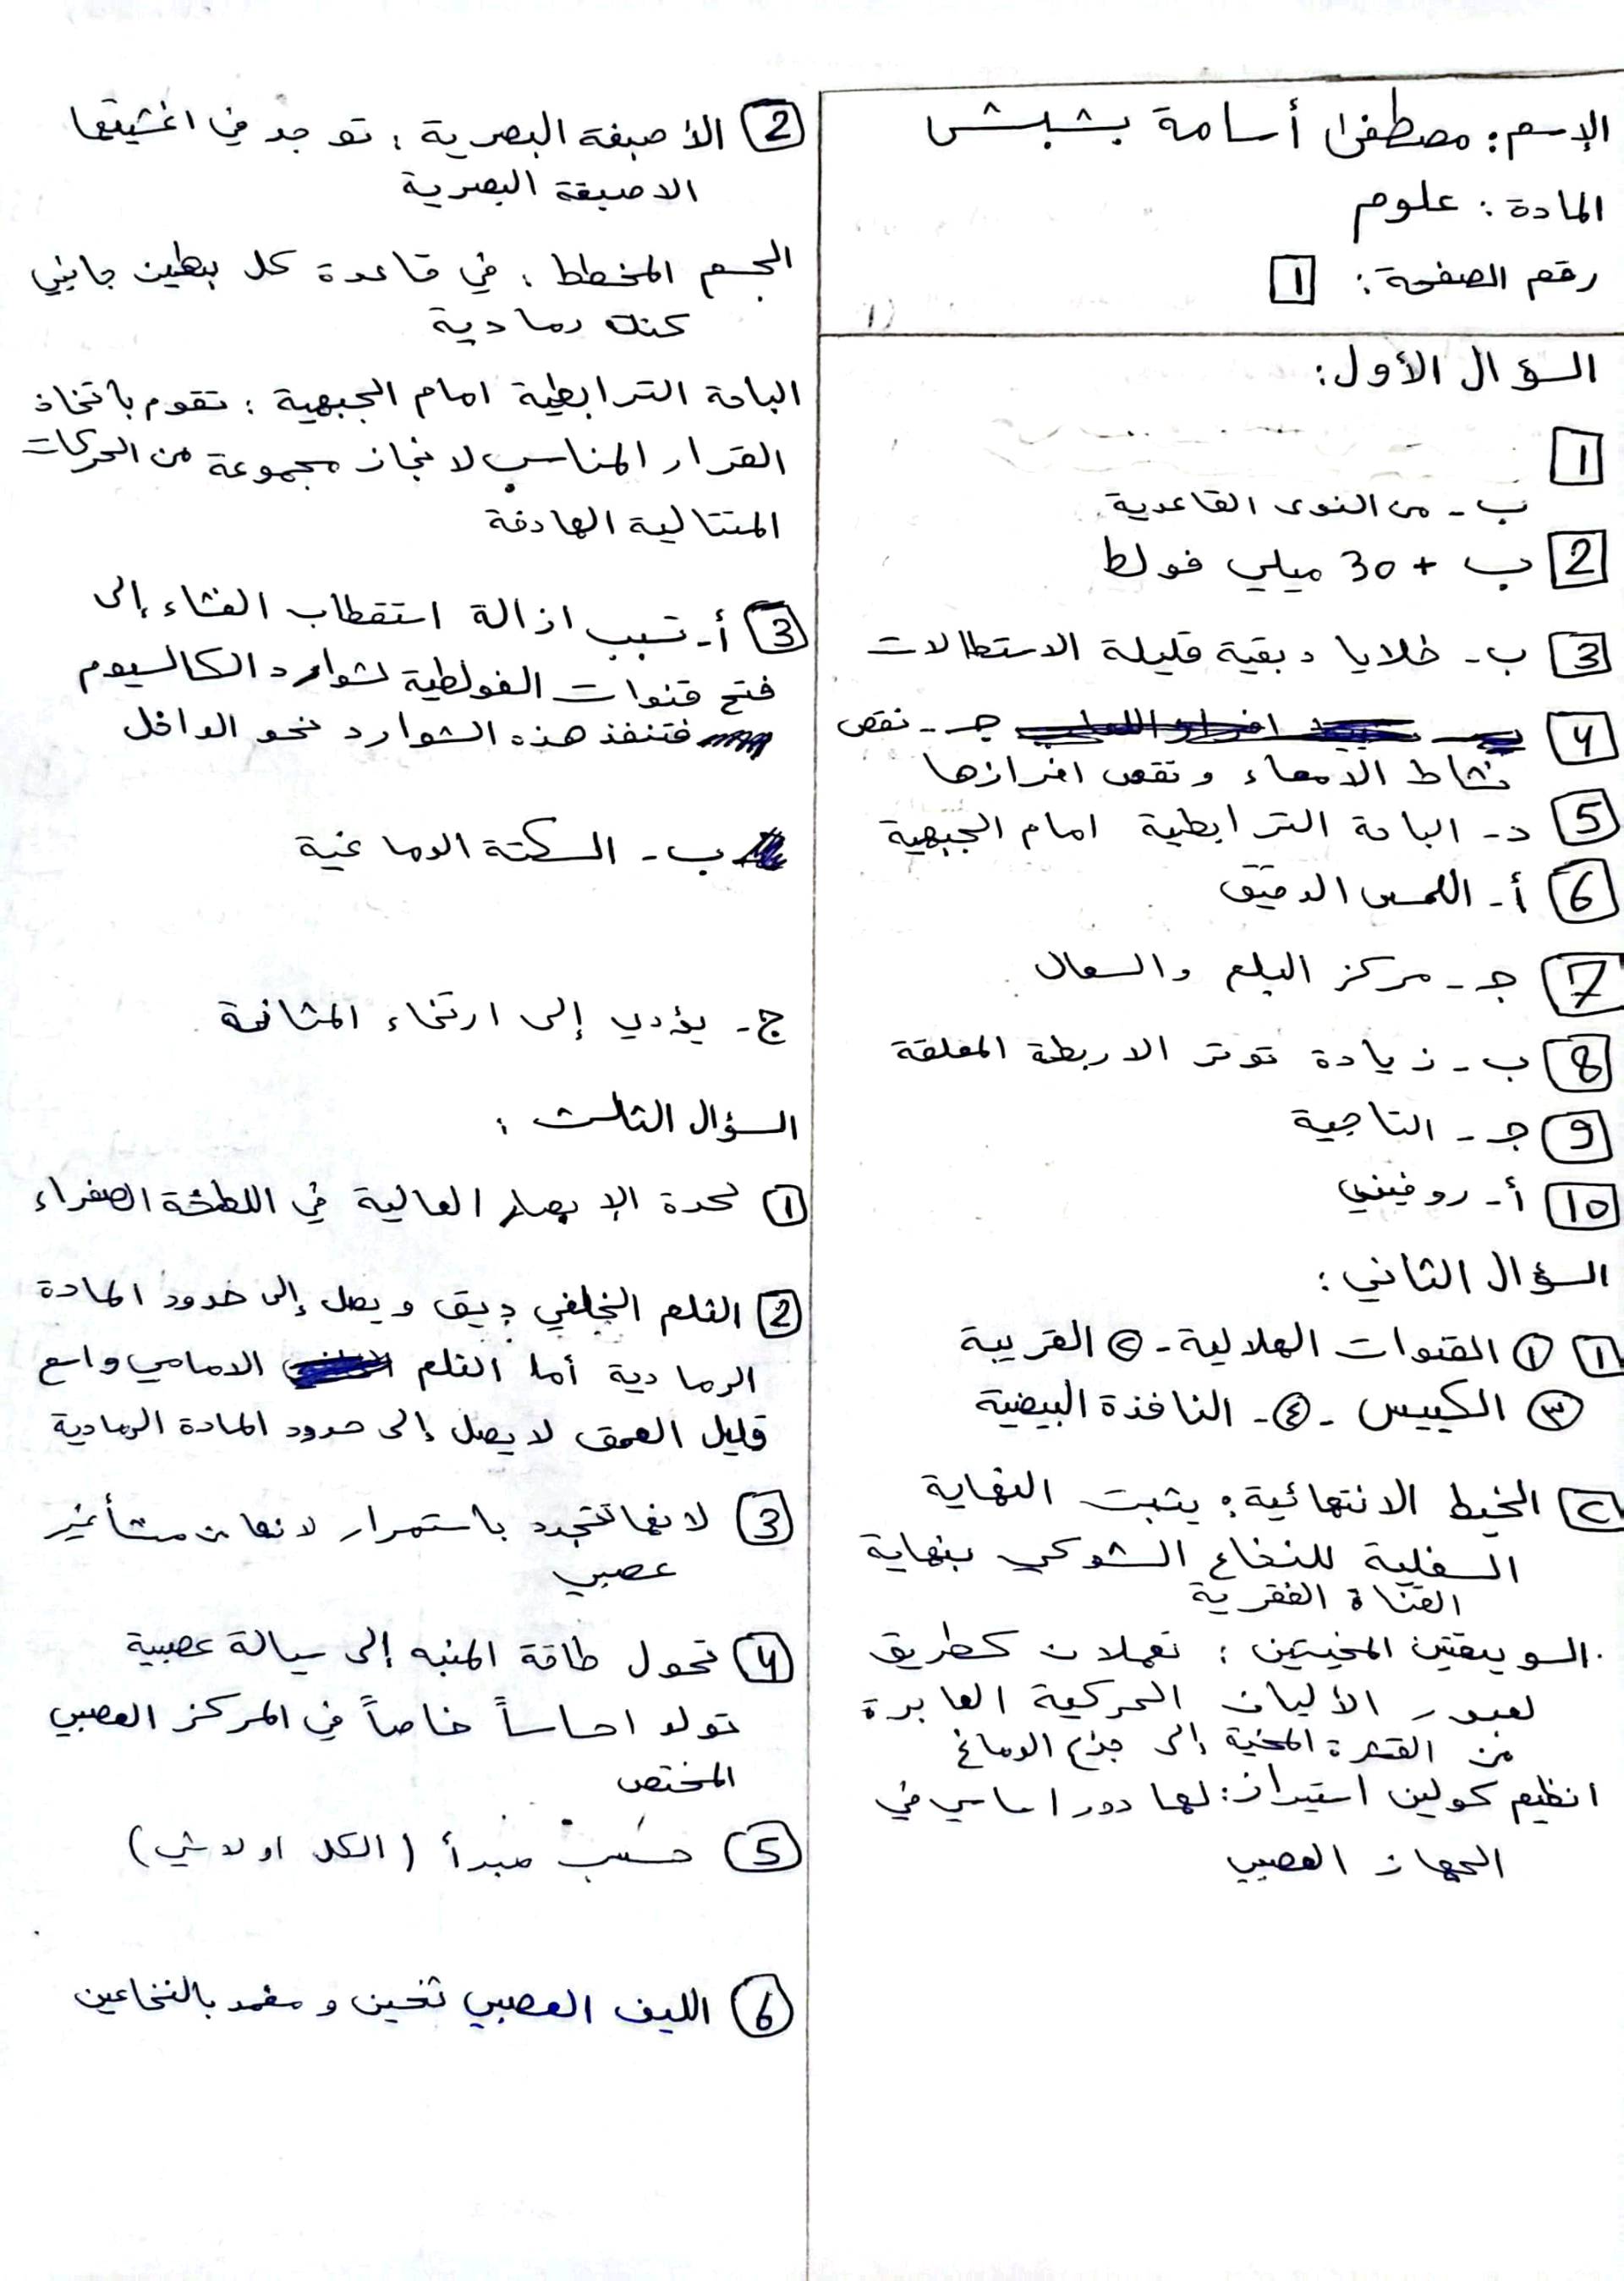 الإسم: مصطفى أسامة بشبش
المادة: علوم
رقم الصفحة: 1
السؤال الأول:
1
ب - من النوى القاعدية
2 ب + 30 ميلي فولط
3 ب - خلايا دبقية قليلة الاستطالات
4 جـ - نقص
نشاط الأمعاء ونقص افرازها
5 د - الباحة الترابطية امام الجبهية
6 أ - اللمس الدقيق
7 جـ - مركز البلع والسعال
8 ب - زيادة توتر الاربطة المعلقة
9 جـ - التاجية
10 أ - روفيني
السؤال الثاني:
1 ① القنوات الهلالية - ② القريبة
③ الكييس - ④ - النافذة البيضية
2 الخيط الانتهائية: يثبت النهاية
السفلية للنخاع الشوكي بنهاية
القناة الفقرية
السويقتين المخيتين: تعملان كطريق
لعبور الألياف الحركية العابرة
من القشرة المخية إلى جذع الدماغ
انظيم كولين استيراز: لها دور اساسي في
الجهاز العصبي
2 الأصبغة البصرية: توجد في اغشيتها
الاصبغة البصرية
الجسم المخطط: في قاعدة كل بطين جانبي
كتلة رمادية
الباحة الترابطية امام الجبهية: تقوم باتخاذ
القرار المناسب لانجاز مجموعة من الحركات
المتتالية الهادفة
3 أ - تسبب ازالة استقطاب الغشاء إلى
فتح قنوات الفولطية لشوارد الكالسيوم
فتنفذ هذه الشوارد نحو الداخل
ب - السكتة الدماغية
ج - يؤدي إلى ارتخاء المثانة
السؤال الثالث:
1 لحدة الإبصار العالية في اللطخة الصفراء
2 الثلم الخلفي ضيق ويصل إلى حدود المادة
الرمادية أما الثلم الامامي واسع
قليل العمق لا يصل إلى حدود المادة الرمادية
3 لانها تتجدد باستمرار لانها من منشأ غير
عصبي
4 تحول طاقة المنبه إلى سيالة عصبية
تولد احساساً خاصاً في المركز العصبي
المختص
5 حسب مبدأ (الكل او لا شي)
6 الليف العصبي ثخين ومغمد بالنخاعين